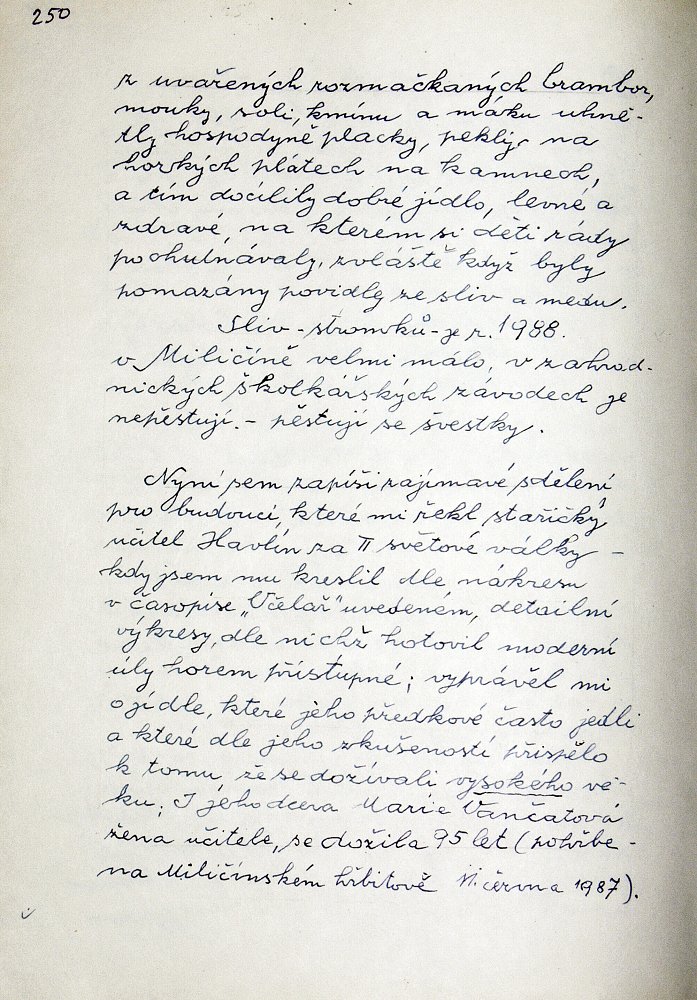 250
z uvařených rozmačkaných brambor,
mouky, soli, kmínu a máku uhně-
tly hospodyně placky, pekly na
horkých plátech na kamnech,
a tím docílily dobré jídlo, levné a
zdravé, na kterém si děti rády
pochutnávaly, zvláště když byly
pomazány povidly ze sliv a medu.
Sliv - stromků - je r. 1988.
v Miličíně velmi málo, v zahrad-
nických školkářských závodech je
nepěstují. - pěstují se švestky.
Nyní sem zapíši zajímavé sdělení
pro budoucí, které mi řekl stařičký
učitel Havlín za II světové války -
kdy jsem mu kreslil dle nákresu
v časopise "Včelař" uvedeném, detailní
výkresy, dle nichž hotovil moderní
úly horem přístupné; vyprávěl mi
o jídle, které jeho předkové často jedli
a které dle jeho zkušeností přispělo
k tomu že se dožívali vysokého vě-
ku. I jeho dcera Marie Vančatová
žena učitele, se dožila 95 let (pohřbe-
na Miličínském hřbitově června 1987).